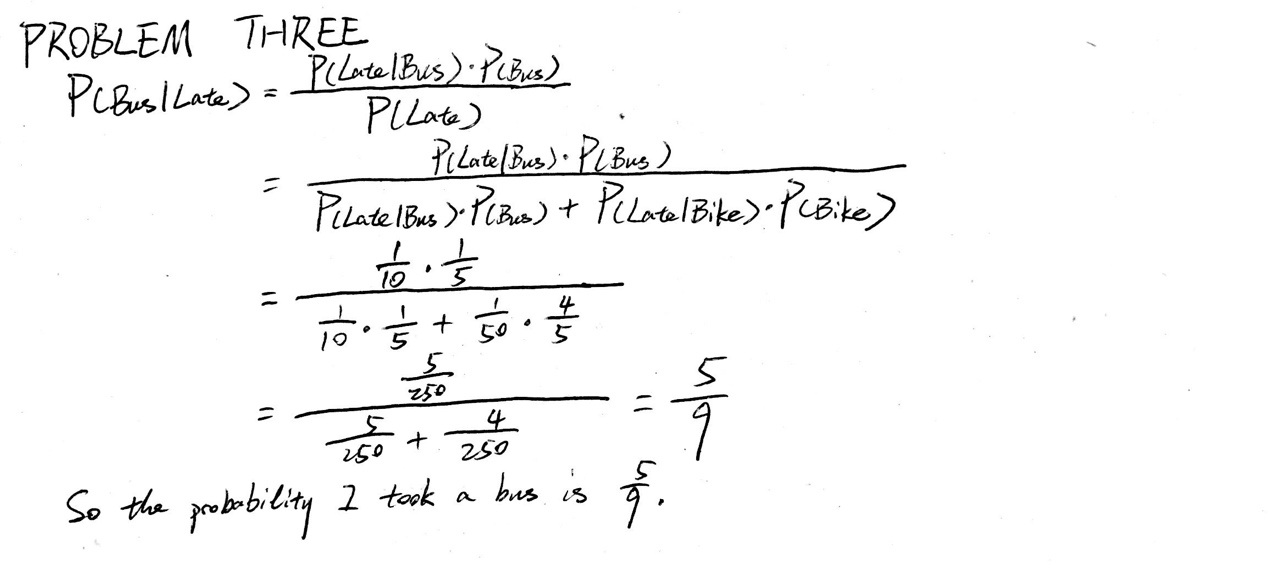 PROBLEM THREE
P(Bus|Late) = P(Late|Bus)·P(Bus) / P(Late)
= P(Late|Bus)·P(Bus) / P(Late|Bus)·P(Bus) + P(Late|Bike)·P(Bike)
= 1/10 · 1/5 / 1/10 · 1/5 + 1/50 · 4/5
= 5/250 / 5/250 + 4/250 = 5/9
So the probability I took a bus is 5/9.